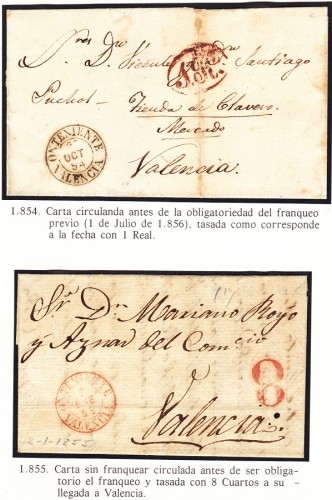 Sres Dn Vicente y Dn Santiago
Puchol
Tienda de Clavero
Mercado
Valencia
ONTENIENTE
OCT
54
VALENCIA
1.854. Carta circulanda antes de la obligatoriedad del franqueo
previo (1 de Julio de 1.856), tasada como corresponde
a la fecha con 1 Real.
Sr. Dn Mariano Royo
y Aznar del Comercio
8
Valencia
VALENCIA
2-1-1855
1.855. Carta sin franquear circulada antes de ser obliga-
torio el franqueo y tasada con 8 Cuartos a su -
llegada a Valencia.